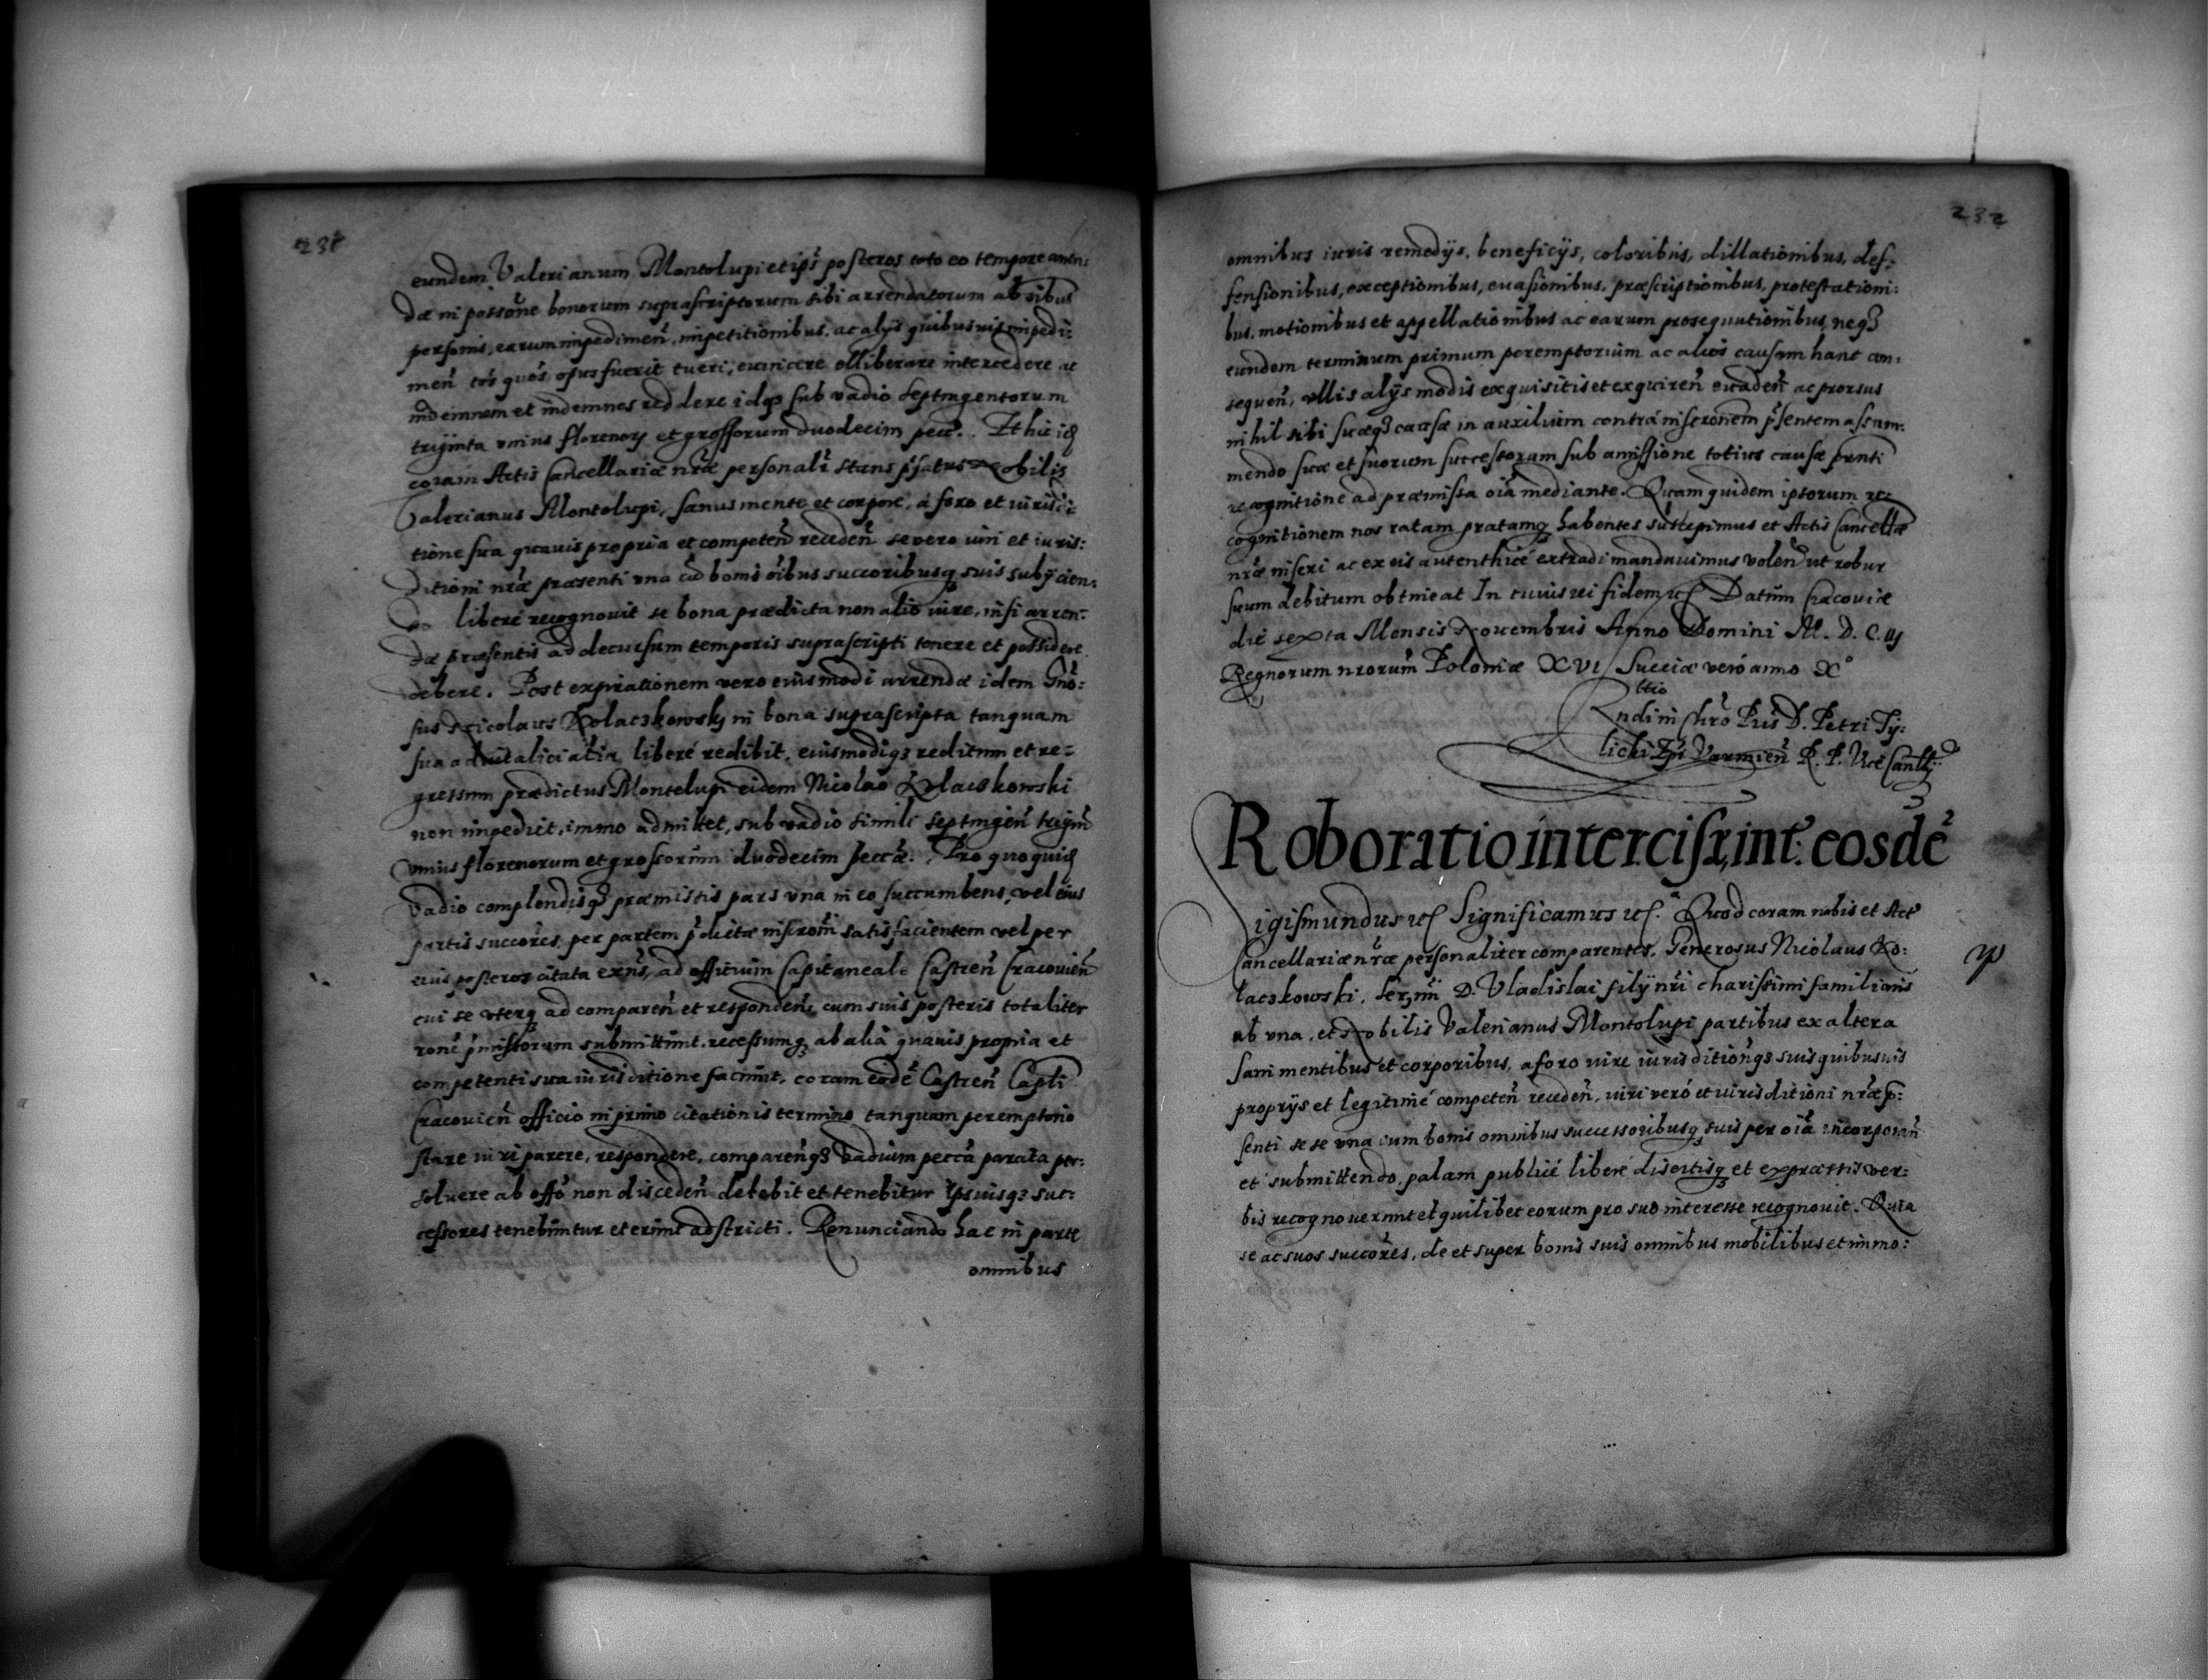 231
eundem Valerianum Montolupi et ips̃ posteros toto eo tempore arren:
dæ in possõne bonorum suprascriptorum sibi arrendatorum ab õibus
personis, earum impedimeñ, impetitionibus, ac alijs quibusuis impedi:
meñ tõs quõs opus fuerit tueri, euincere elliberare intercedere ac
indemnem et indemnes reddere idq3 sub vadio septingentorum
trijinta vnius florenorũ et grossorum duodecim pecc̃. Et hic idẽ
coram Actis Cancellariæ nr̃æ personalr̃ stans p̃fatus Nobilis
Valerianus Montolupi, sanus mente et corpore, á foro et iurisdi:
tione sua quauis propria et competeñ recedeñ se vero iuri et iuris:
ditioni nr̃æ præsenti vna cũ bonis õibus succoribusq3 suis subijcien:
do liberé recognouit se bona prædicta non alio iure, nisi arren:
dæ præsentis ad decursum temporis suprascripti tenere et possidere
debere. Post expirationem vero eiusmodi arrendæ idem Gnõ:
sus Nicolaus Kolaczkowskj in bona suprascripta tanquam
sua aduitalicialia liberé redibit, eiusmodiq3 reditum et re=
gressum prædictus Montelupi eidem Nicolao Kolaczkowski
non impediet, immo admittet, sub vadio simili septingeñ trigiñ
vnius florenorum et grossorum duodecim peccæ̃. Pro quo quidẽ
vadio complendisq3 præmissis pars vna in eo succumbens, vel eius
partis succores̃, per partem p̃dictæ inscrom̃ satisfacientem vel per
eius posteros citata exñs, ad officium Capitaneale Castreñ Cracouieñ
cui se vterq3 ad compareñ et respondeñ, cum suis posteris totaliter
ronẽ p̃missorum submittunt, recessumq3 ab alia quauis propria et
competenti sua iurisditione faciunt, coram eodẽ Castreñ Capli
Cracouieñ officio in primo citationis termino tanquam peremptorio
stare iuri parere, respondere, compareñq3 vadium peccã parata per:
soluere ab offo non discedeñ debebit et tenebitur ipsiusq3 suc:
cessores tenebuntur et erunt adstricti. Renunciando hac in parte
omnibus
232
omnibus iuris remedijs, beneficijs, coloribus, dillationibus, def:
fensionibus, exceptionibus, euasionibus, præscriptionibus, protestationi:
bus, motionibus et appellationibus ac earum prosequutionibus, neq3
eundem terminum primum peremptorium ac alios causam hanc con:
sequeñ, vllis alijs modis exquisitis et exquireñ euadeñ ac prorsus
nihil sibi suæq3 causæ in auxilium contra inscronem p̃sentem assum:
mendo suæ et suorum successorum sub amissione totius causæ pñti
recognitione ad præmissa oĩa mediante. Quam quidem ipsorum re:
cognitionem nos ratam gratamq3 habentes suscepimus et Actis Cancellæ
nr̃æ inseri ac ex eis autenthicé extradi mandauimus volen̄ ut robur
suum debitum obtineat In cuius rei fidem etc̃ Datum Cracouiæ
die sexta Mensis Nouembris Anno Domini M. D. C. iij
Regnorum nrorum̃ Poloniæ XVI Sueciæ veró anno X°
ttio
Rndi in Chrõ Pris̃ D. Petri Ty:
licki Epĩ Varmieñ R. P. Vice Canlly
Roboratio intercisæ, int̃: eosdẽ
Sigismundus etc̃ Significamus etc̃. Quod coram nobis et Act̃
Cancellariæ nr̃æ personaliter comparentes, Generosus Nicolaus Ko:
laczkowski, Serm̃i D. Vladislai filij nr̃i charissimi familiaris
ab vna, et Nobilis Valerianus Montolupi partibus ex altera
sani mentibus et corporibus, a foro iure iurisditioñq3 suis quibusuis
proprijs et legitimé competeñ recedeñ, iuri veró et iurisditioni nr̃æ p̃:
senti se se vna cum bonis omnibus successoribusq3 suis per oĩa incorporañ
et submittendo, palam publicé liberé disertisq3 et expressis ver:
bis recognouerunt et quilibet eorum pro suo interesse recognouit. Quia
se ac suos succores̃, de et super bonis suis omnibus mobilibus et immo: